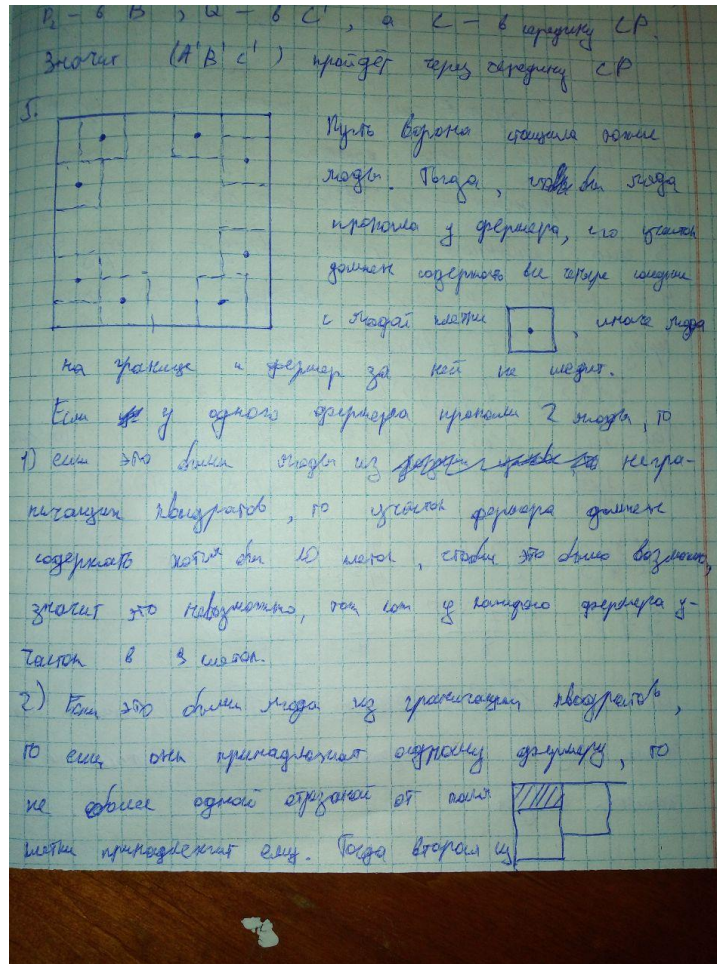 P₂ - в B', Q - в C', а C - в середину CP.
Значит (A'B'C') пройдёт через середину CP
5.
Пусть Ворона стащила такие
ягоды. Тогда, чтобы ягода
пропала у фермера, его участок
должен содержать все четыре соседние
с ягодой клетки , иначе ягода
на границе и фермер за ней не следит.
Если у одного фермера пропали 2 ягоды, то
1) если это были ягоды из негра-
ничащих квадратов, то участок фермера должен
содержать хотя бы 10 клеток, чтобы это было возможно,
значит это невозможно, так как у каждого фермера у-
часток в 9 клеток.
2) Если это были ягода из граничащих квадратов,
то если они принадлежат одному фермеру, то
не более одной отрезаной от поля
клетки принадлежит ему. Тогда вторая из